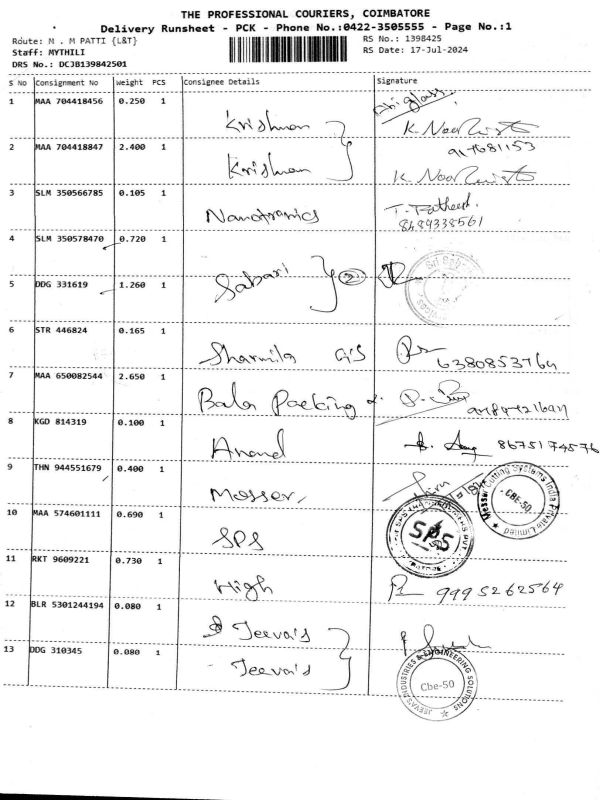 THE PROFESSIONAL COURIERS, COIMBATORE
Delivery Runsheet - PCK - Phone No.:0422-3505555 - Page No.:1
Route: M . M PATTI {L&T}
RS No.: 1398425
Staff: MYTHILI
RS Date: 17-Jul-2024
DRS No.: DCJB139842501
S No Consignment No Weight PCS Consignee Details Signature
1 MAA 704418456 0.250 1 Krishnan
2 MAA 704418847 2.400 1 Krishnan
3 SLM 350566785 0.105 1 Nanotronics
8489338561
4 SLM 350578470 0.720 1
5 DDG 331619 1.260 1 Sabari
6 STR 446824 0.165 1 Sharmila GIS 6380853764
7 MAA 650082544 2.650 1 Bala Packing
8 KGD 814319 0.100 1 Anand 8675174576
9 THN 944551679 0.400 1 Messer
Messer Cutting Systems India Private Limited
CBE-50
10 MAA 574601111 0.690 1 SPS
SPS
11 RKT 9609221 0.730 1 High 9995262564
12 BLR 5301244194 0.080 1 Jeeva's
13 DDG 310345 0.080 1 Jeeva's
JEEVA'S INDUSTRIES & ENGINEERING SOLUTIONS
Cbe-50